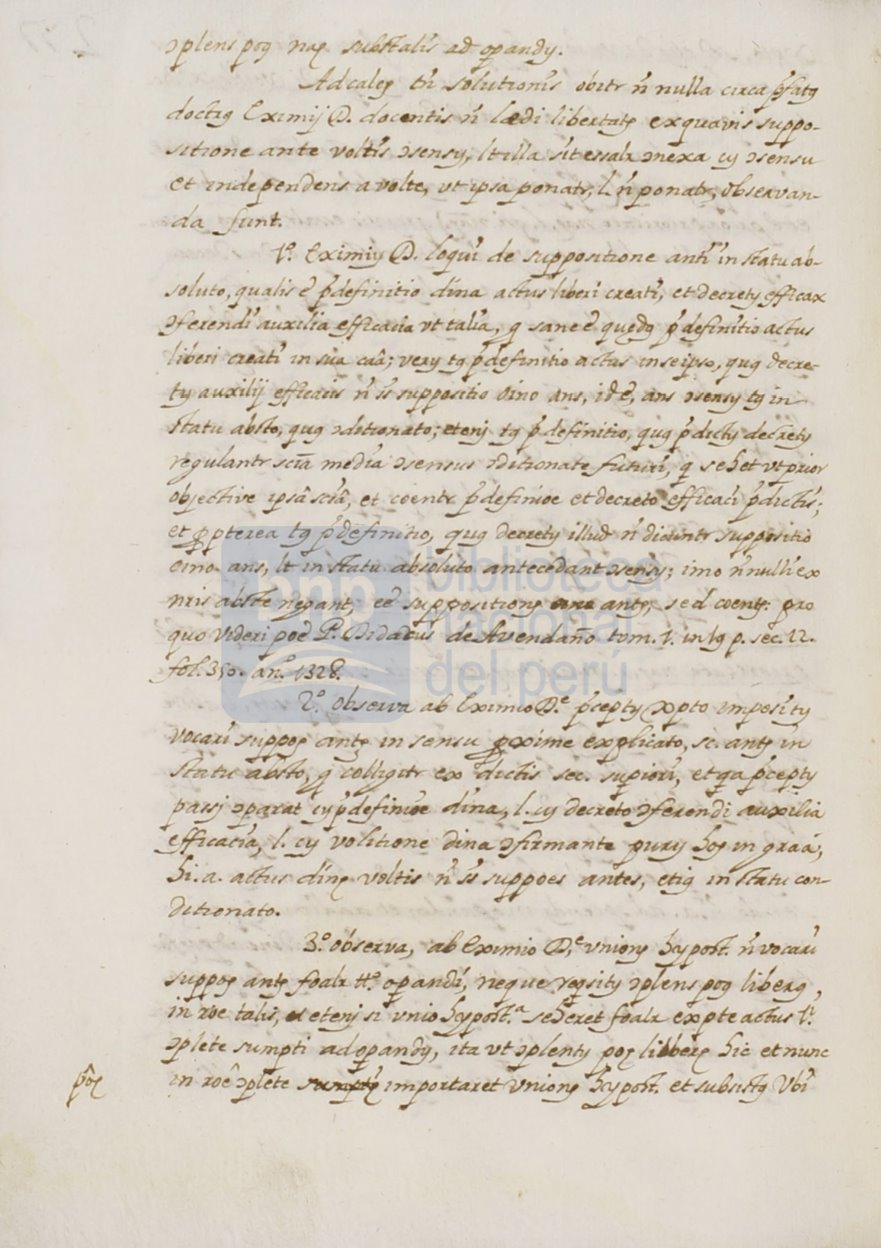 ɔplens poȩ naȩ subsťalis ad opandȩ.
Ad calcȩ tñ solutionis obitr ñ nulla circa p̃fatȩ
doctȩ Eximij D. docentis ñ lædi libertatȩ ex quavis suppo-
sitione ante voltis ɔsensȩ, lt illa sit essalr ɔnexa cȩ ɔsensu
et independens a volte, vt ipsa ponatr, l. ñ ponatr, observan-
da sunt.
1.º Eximiȩ D. loqui de suppositione anti in statu ab-
soluto, qualis ẽ p̃definitio diña actus liberi creati, et decretȩ efficax
ɔferendi auxilia efficacia vt talia, q sane ẽ quȩdȩ p̃definitio actus
liberi creati in sua caâ; verȩ tȩ p̃definitio actus in se ipso, quȩ decre-
tȩ auxilij efficacis ñ s̃t suppositio oĩno ans, id ẽ, ans ɔsensȩ tȩ in
statu absto, quȩ ɔditionato; etenȩ tȩ p̃definitio, quȩ p̃dictȩ decretȩ
regulantr scĩa media ɔsensus ɔditionate futuri, q se het vt prior
objective ipsâ scîâ, et coentr p̃definioe et decreto efficaci p̃dictis;
et propterea tȩ p̃definitio, quȩ decretȩ illud ñ dicuntr suppositio
oĩno ans, lt in statu absoluto antecedant ɔsensȩ; imo ñ nulli ex
nris abste negant, eẽ suppositionȩ antȩ, sed coentȩ pro
quo videri poẽ P. Didacus de Avendaño tom. 1. in 1ȩ p. sec. 12.
fol. 350. an.º 1328.
2.º observa ab Eximio D.e p̃ceptȩ xp̃to impositȩ
vocari suppoȩ antȩ in sensu proxime explicato, sc. antȩ in
statu absto, q colligitr ex dictis sec. superiori, et qa p̃ceptȩ
passȩ ɔparat cȩ p̃definioe diña, l. cȩ decreto ɔferendi auxilia
efficacia, l. cȩ volitione diña ɔfirmante purȩ hoȩ in graâ;
hi. a. actus dinȩ voltis ñ s̃t suppoes antes, etiȩ in statu con-
ditionato.
3.º observa, ab Eximio D.e unionȩ hypost. ñ vocari
suppoȩ antȩ foalr tt.º operandi, neque reqsitȩ ɔplens poȩ liberȩ,
in roe talis, etenȩ si unio hypost.a se heret foalr ex pte actus 1.i
ɔplete sumpti ad operandȩ, ita vt ɔplentȩ poȩ liberȩ hic et nunc
in roê ɔplete importaret unionȩ hypost. et subsistȩ Vbi
pôȩ